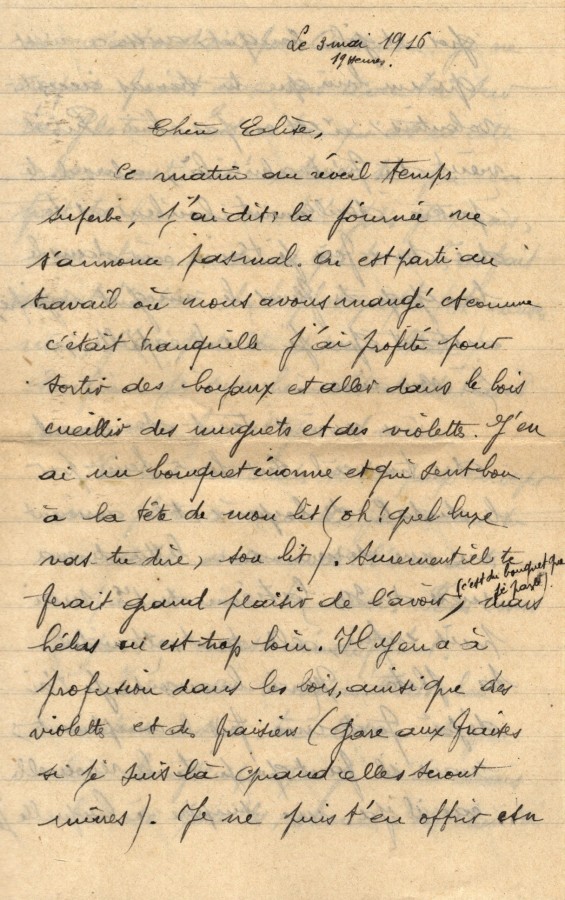 Le 3 mai 1916
19 heures.
Chère Elise,
Ce matin au réveil temps
superbe, j'ai dit: la journée ne
s'annonce pas mal. On est parti au
travail où nous avons mangé et comme
c'était tranquille j'ai profité pour
sortir des boyaux et aller dans le bois
cueillir des muguets et des violettes. J'en
ai un bouquet énorme et qui sent bon
à la tête de mon lit (oh! quel luxe
vas tu dire, son lit). Surement il te
(c'est du bouquet que
je parle).
ferait grand plaisir de l'avoir, mais
hélas on est trop loin. Il y en a à
profusion dans les bois, ainsi que des
violettes et des fraisiers (gare aux fraises
si je suis là quand elles seront
mûres). Je ne puis t'en offrir